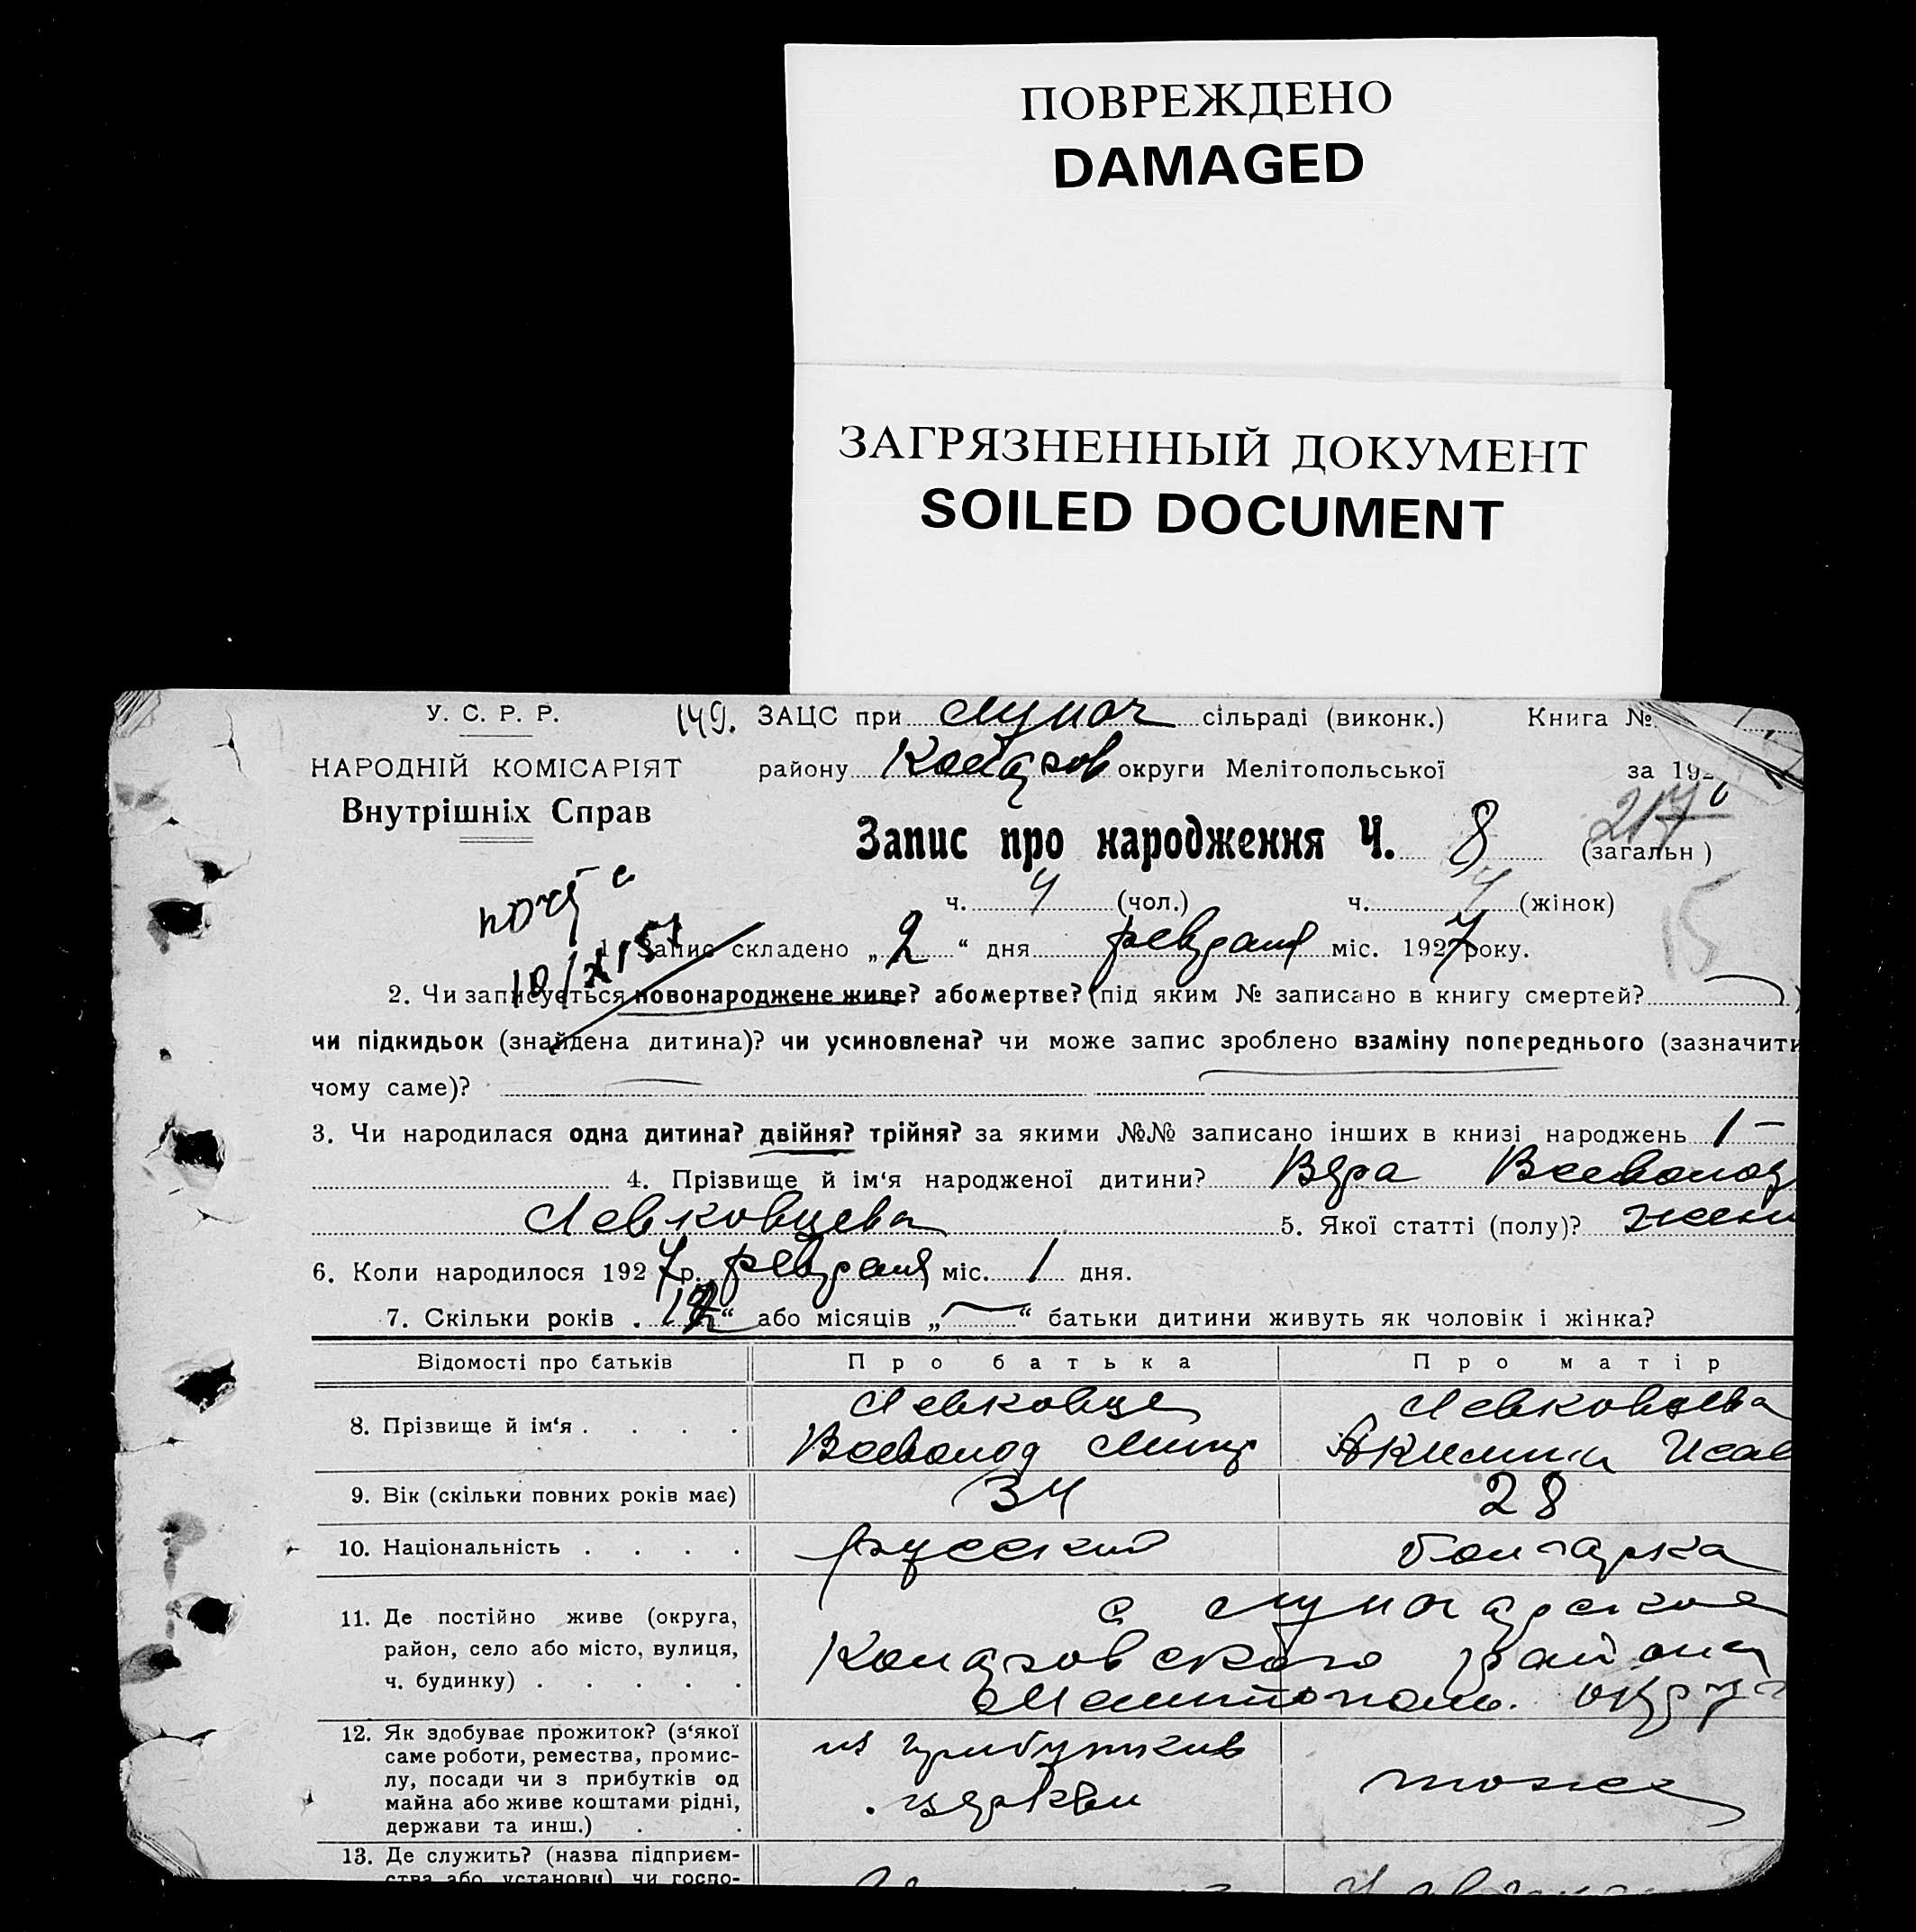 ПОВРЕЖДЕНО
DAMAGED
ЗАГРЯЗНЕННЫЙ ДОКУМЕНТ
SOILED DOCUMENT
У. С. Р. Р. 149. ЗАЦС при сільраді (виконк.) Книга №
НАРОДНІЙ КОМІСАРІЯТ району округи Мелітопольської за 192
Внутрішніх Справ
217
Запис про народження Ч. 8 (загальн)
ч. 4 (чол.) ч. 4 (жінок)
15
1. Запис складено „2“ дня февраля міс. 1927 року.
2. Чи записується новонароджене живе? або мертве? (під яким № записано в книгу смертей?
чи підкидьок (знайдена дитина)? чи усиновлена? чи може запис зроблено взаміну попереднього (зазначити
чому саме)?
3. Чи народилася одна дитина? двійня? трійня? за якими №№ записано інших в книзі народжень 1 —
4. Прізвище й ім‘я народженої дитини? Вера Всеволод
Левковцева 5. Якої статті (полу)? жен
6. Коли народилося 1927 р. февраля міс. 1 дня.
7. Скільки років . 12 “ або місяців „ — “ батьки дитини живуть як чоловік і жінка?
Відомості про батьків Про батька Про матір
8. Прізвище й ім‘я . . . . Левковцев Левковцева
Всеволод Дмитр Акилина Исае
9. Вік (скільки повних років має) 34 28
10. Національність . . . . русский болгарка
11. Де постійно живе (округа, с Луначарское
район, село або місто, вулиця, района
ч. будинку) . . . . . Мелитополь. округ
12. Як здобуває прожиток? (з‘якої
саме роботи, ремества, промис- из прибутков
лу, посади чи з прибутків од церкви тоже
майна або живе коштами рідні,
держави та инш.) . .
13. Де служить? (назва підприєм-
ства або установи) чи госпо-